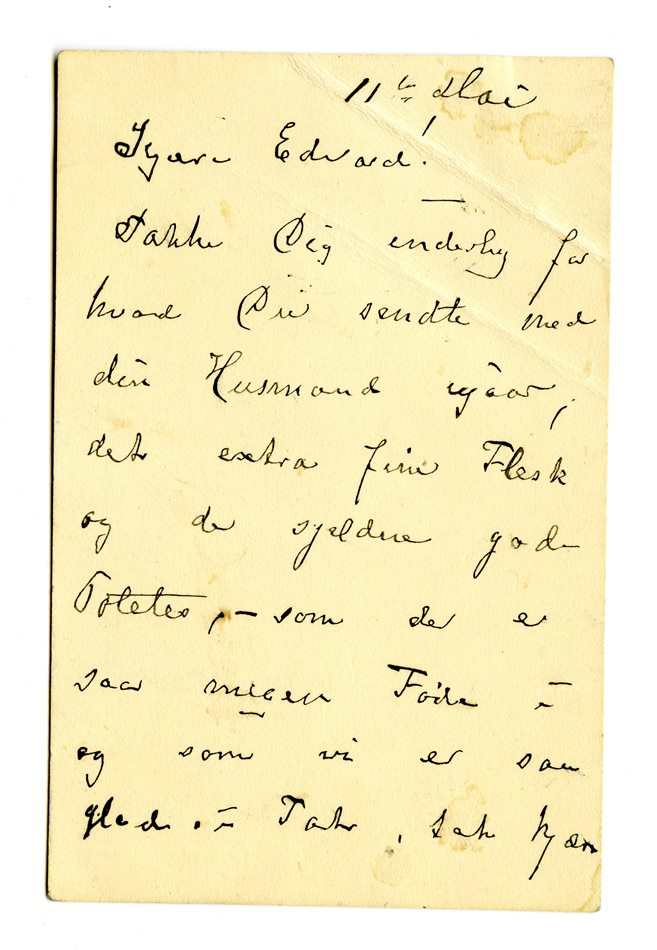 11te Mai
Kjære Edvard!
Takke Dig inderlig for
hvad Du sendte med
din Husmand igaar,
det extra fine Flesk
og de sjeldne gode
Potetes, – som der er
saa megen Føde i
og som vi er saa
glade i – Tak, tak kjære